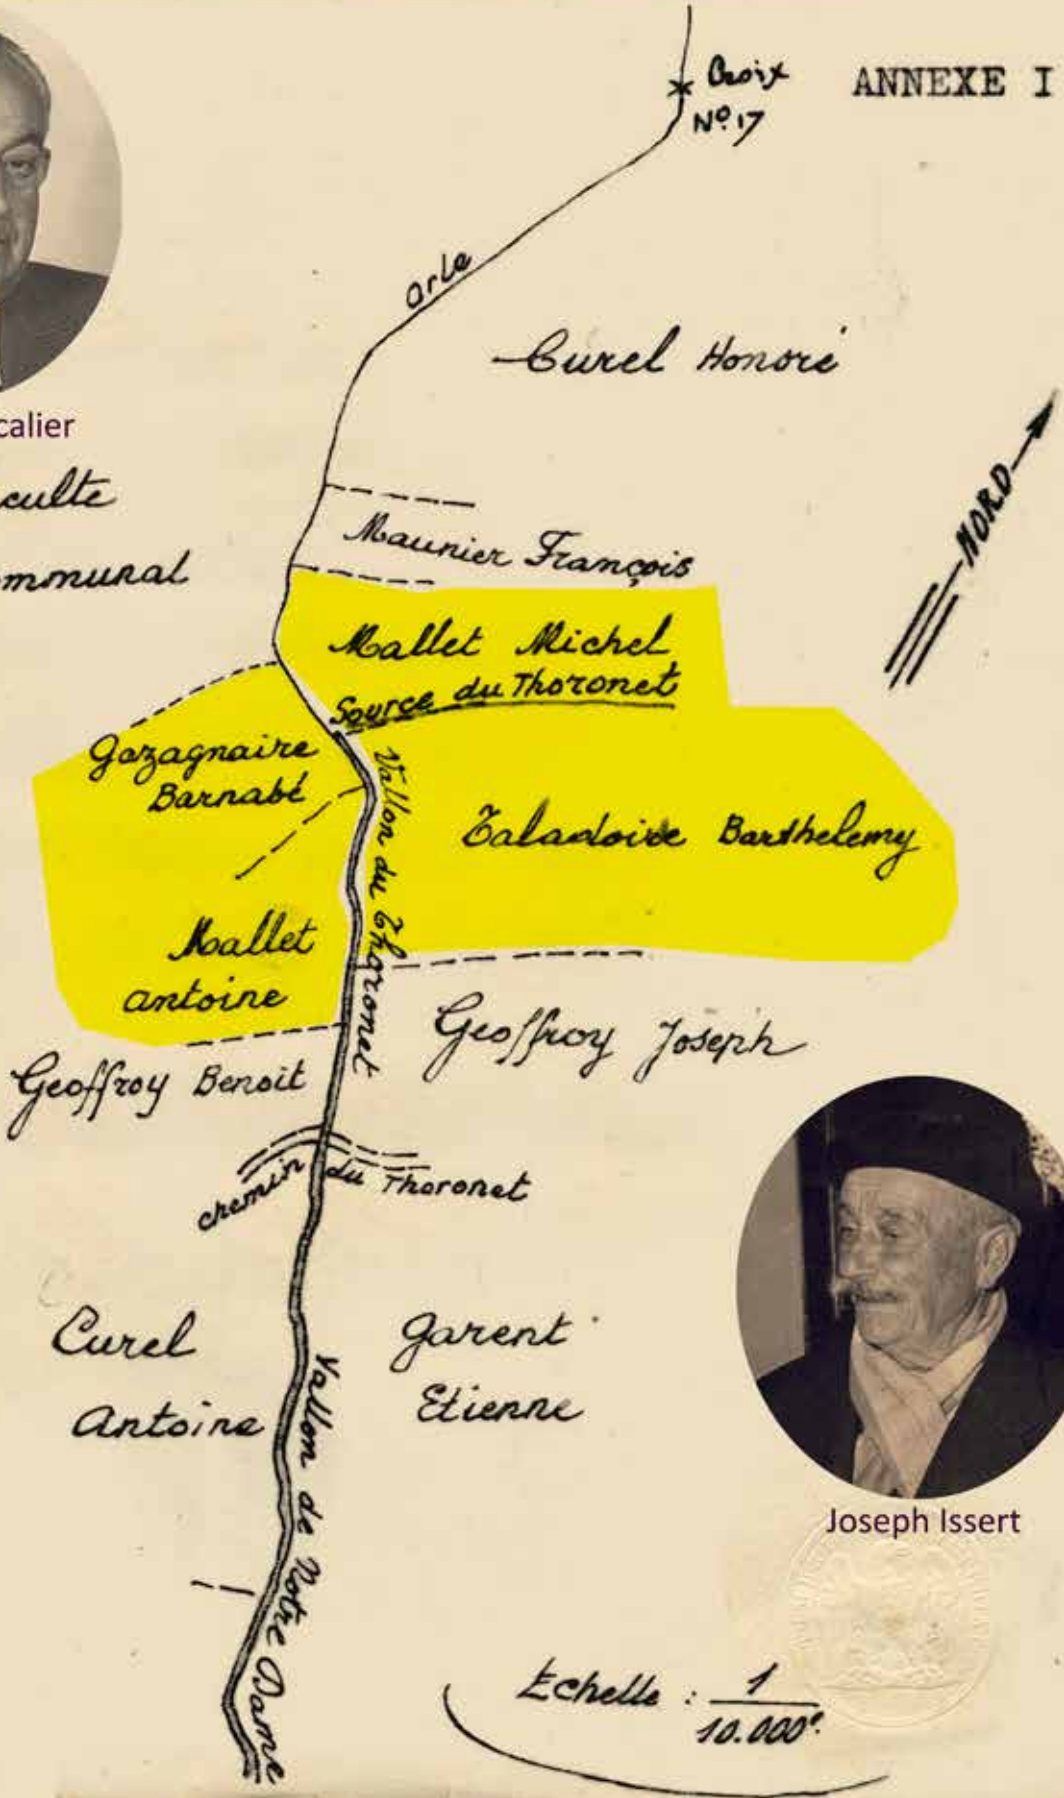 Croix
ANNEXE I
Nº 17
Orle
Curel Honoré
calier
culte
NORD
Maunier François
mmunal
Mallet Michel
Source du Thoronet
Gazagnaire
Barnabé
Vallon du Thoronet
Talandoire Barthelemy
Mallet
antoine
Geoffroy Joseph
Geoffroy Benoit
chemin du Thoronet
Curel
Antoine
Garent
Etienne
Vallon de Notre Dame
Joseph Issert
Echelle : 1
10.000e.